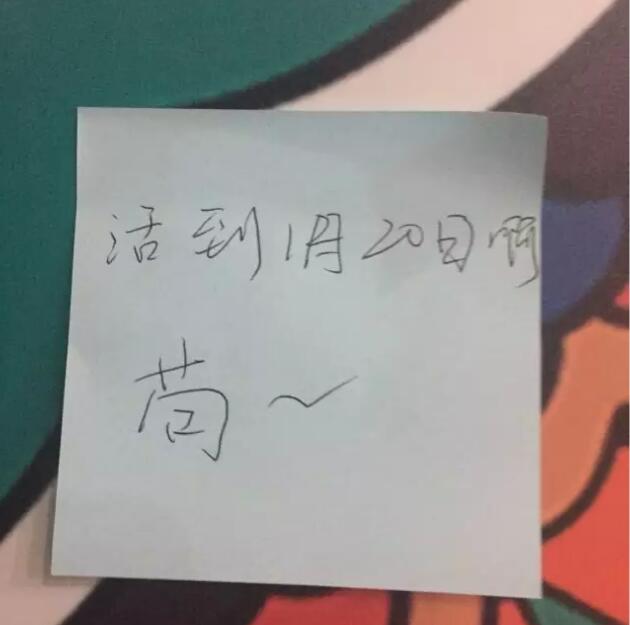 活到1月20日啊
苟~